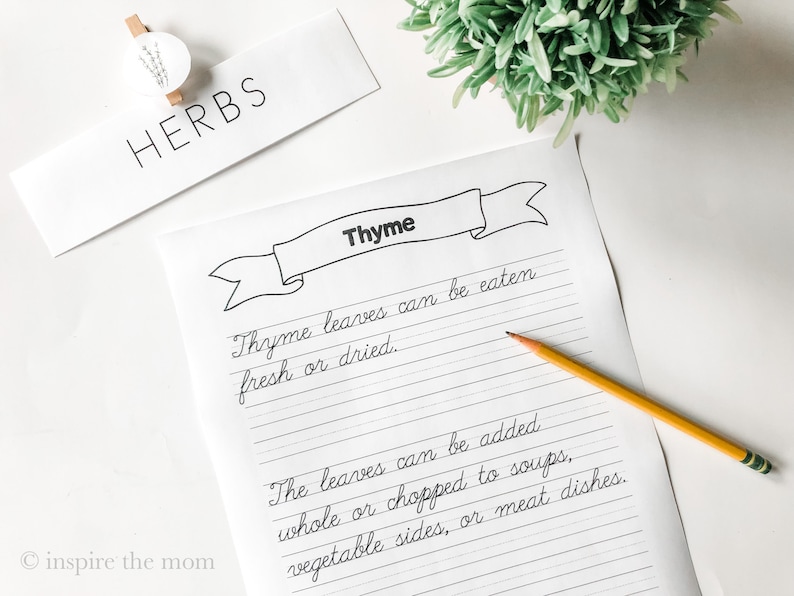 HERBS
Thyme
Thyme leaves can be eaten
fresh or dried.
The leaves can be added
whole or chopped to soups,
vegetable sides, or meat dishes.
© inspire the mom